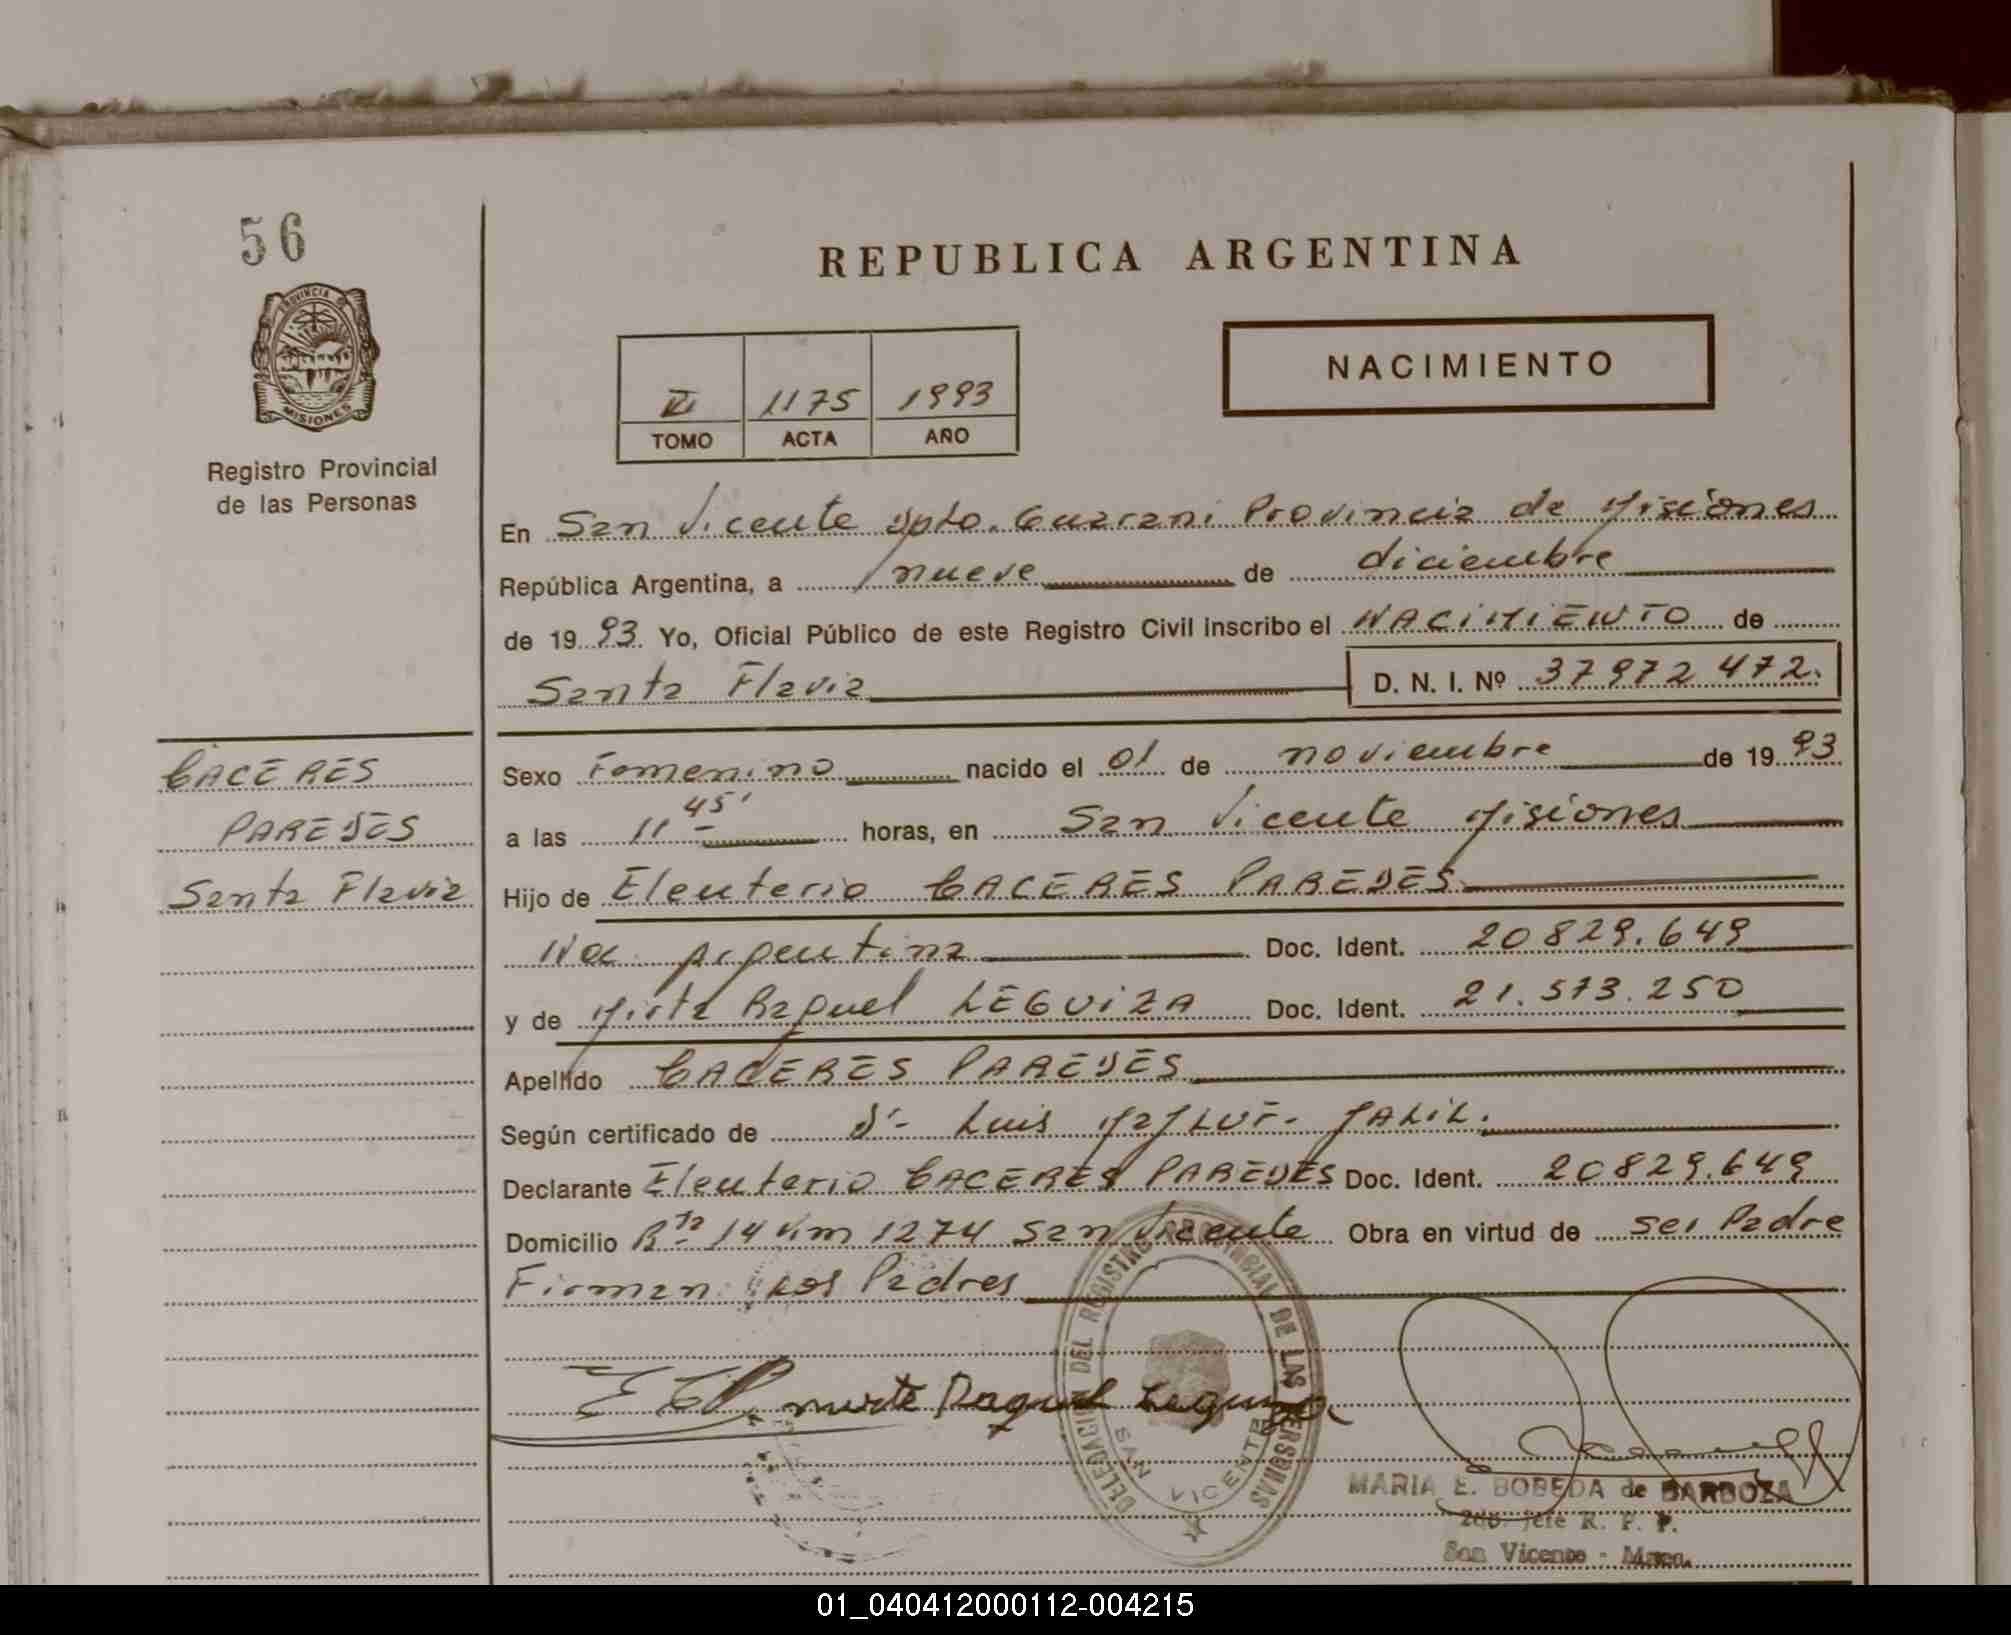 56
PROVINCIA DE
MISIONES
Registro Provincial
de las Personas
REPUBLICA ARGENTINA
NACIMIENTO
III 1175 1993
TOMO ACTA AÑO
En San Vicente Dpto. Guarani Provincia de Misiones
República Argentina, a nueve de diciembre
de 19 93 Yo, Oficial Público de este Registro Civil inscribo el NACIMIENTO de
Santa Flavia D. N. I. Nº 37972472.
CACERES
PAREDES
Santa Flavia
Sexo Femenino nacido el 01 de noviembre de 19 93
a las 11 45' horas, en San Vicente Misiones
Hijo de Eleuterio CACERES PAREDES
Nac. Argentina Doc. Ident. 20829.649
y de Mirta Raquel LEGUIZA Doc. Ident. 21.573.250
Apellido CACERES PAREDES
Según certificado de Dr. Luis JALIL.
Declarante Eleuterio CACERES PAREDES Doc. Ident. 20829.649
Domicilio Rta 14 Km 1274 San Vicente Obra en virtud de ser Padre
Firman Los Padres
Raquel
DELEGACION DEL REGISTRO PROVINCIAL DE LAS PERSONAS
SAN VICENTE
MARIA E. BOBEDA de BARBOZA
2do. Jefe R. P. P.
San Vicente - Mnes.
01_040412000112-004215